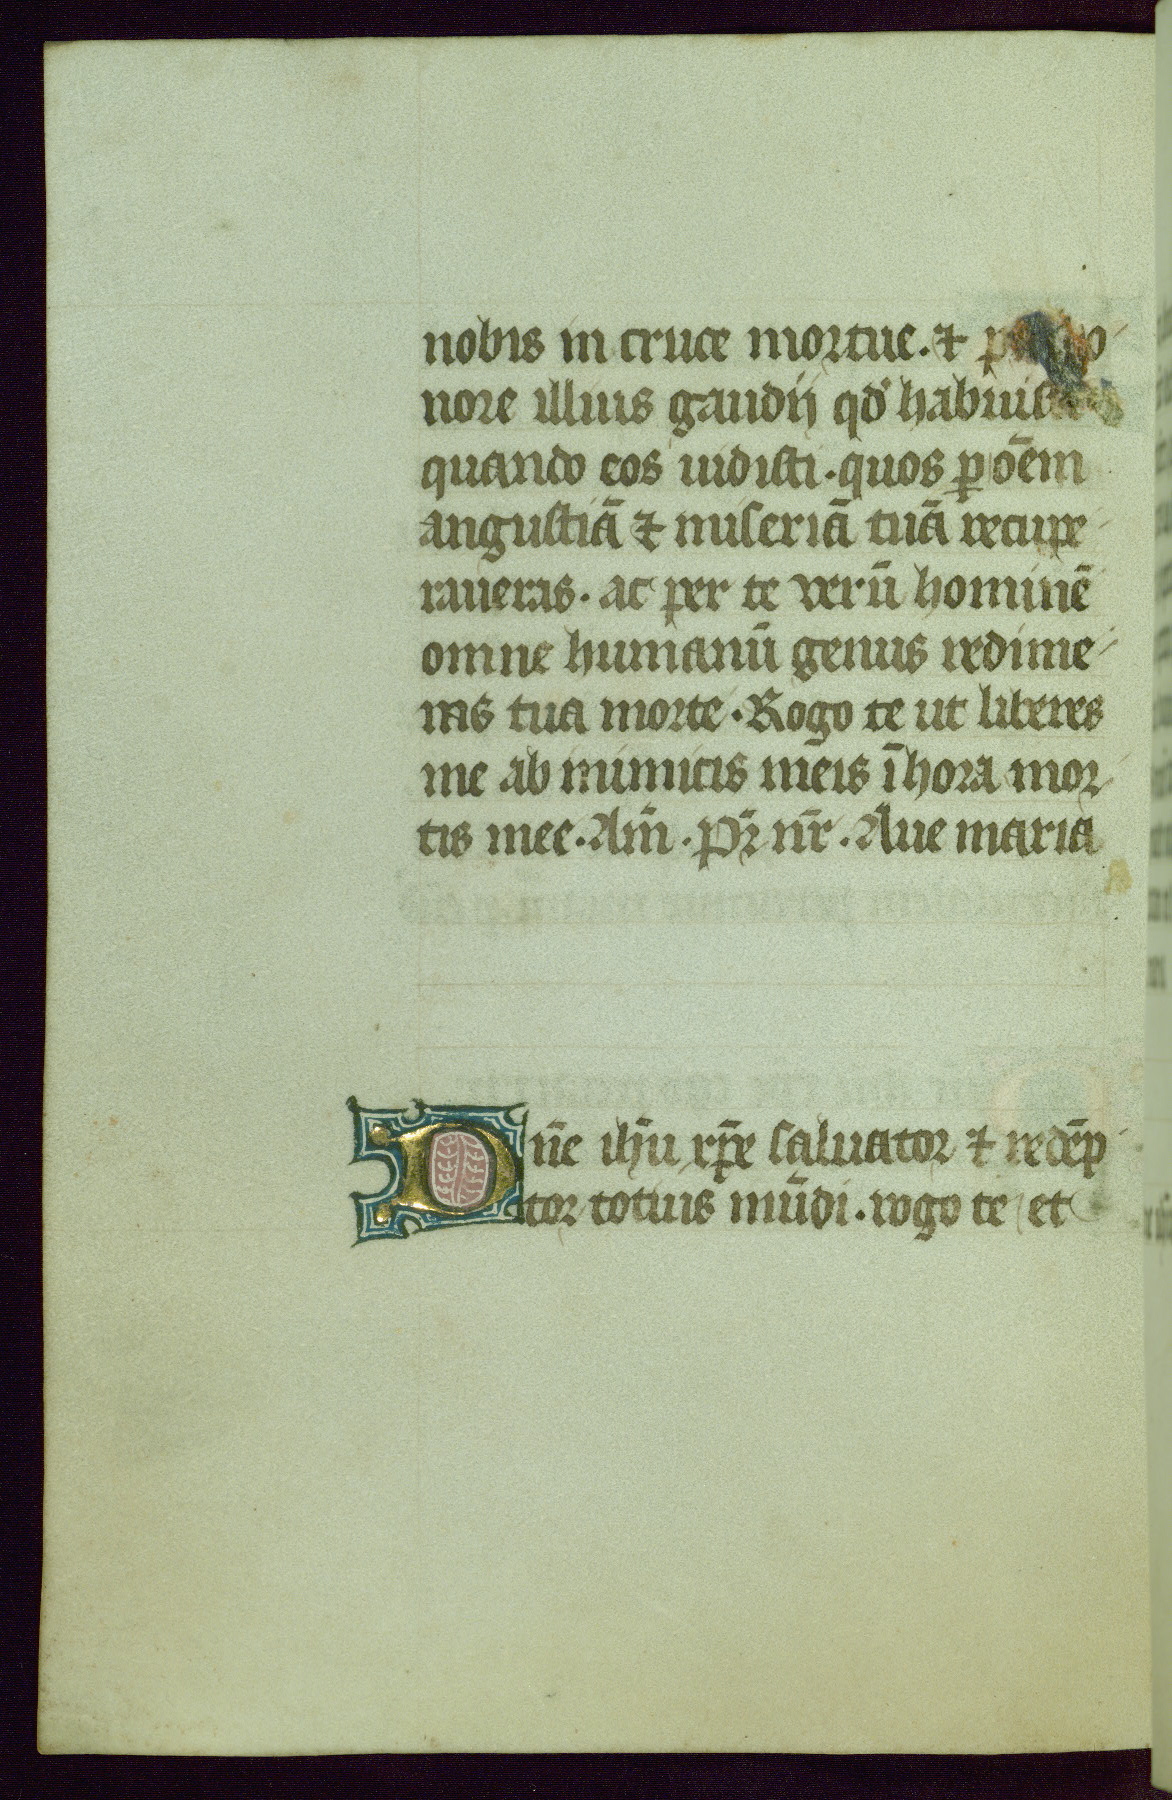 nobis in cruce mortue. ⁊
nore illius gaudij qd̓ habuis
quando eos uidisti. quos ꝑ oēm
angustiā ⁊ miseriā tuā recupe
raueras. ac per te verū hominē
omne humanū genus redime
ras tua morte. Rogo te ut liberes
me ab inimicis meis ī hora mor
tis mee. Am̄. Pr̄ nr̄. Aue maria
Dn̄e ihū xp̄e saluator ⁊ redēp
tor totius mūdi. rogo te et